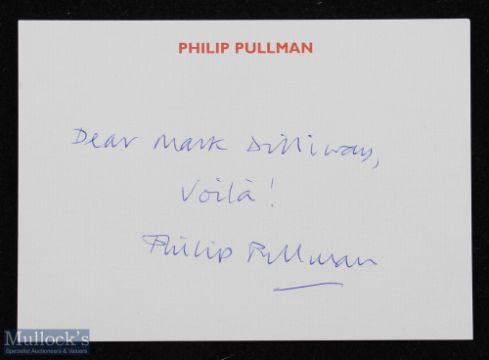 PHILIP PULLMAN
Dear Mark Dilliway,
Voilà!
Philip Pullman
Mullock's
Specialist Auctioneers & Valuers